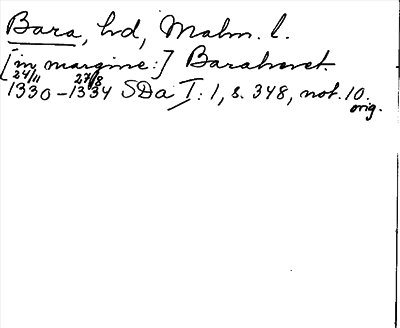 Bara, hd, Malm. l.
[in margine:] Baraheret.
24/11 27/8
1330–1334 SDa I: 1, s. 348, not. 10.
orig.